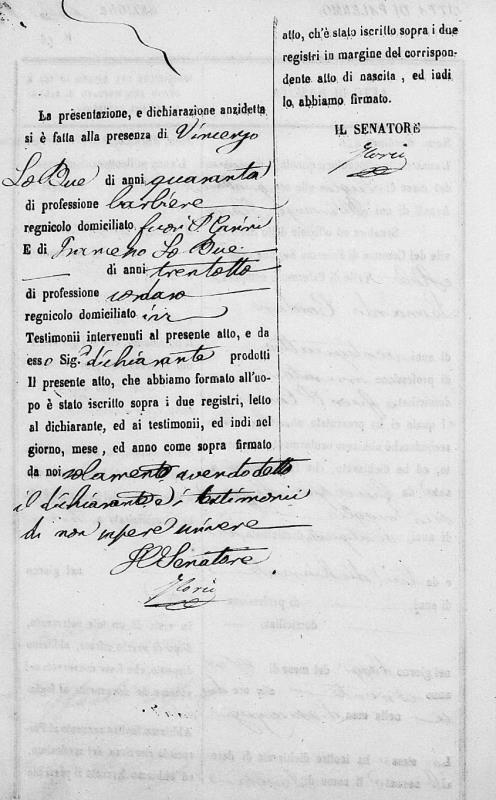 La presentazione, e dichiarazione anzidetta
si è fatta alla presenza di Vincenzo
Lo Bue di anni quaranta
di professione barbiere
regnicolo domiciliato fuori P. Carini
E di Francesco Lo Bue
di anni trentotto
di professione cordaro
regnicolo domiciliato ivi
Testimonii intervenuti al presente atto, e da
esso Sig.r dichiarante prodotti
Il presente atto, che abbiamo formato all'uo-
po è stato iscritto sopra i due registri, letto
al dichiarante, ed ai testimonii, ed indi nel
giorno, mese, ed anno come sopra firmato
da noi solamente avendo detto
il dichiarante e i testimonii
di non sapere scrivere
Il Senatore
atto, ch'è stato iscritto sopra i due
registri in margine del corrispon-
dente atto di nascita, ed indi
lo abbiamo firmato.
IL SENATORE